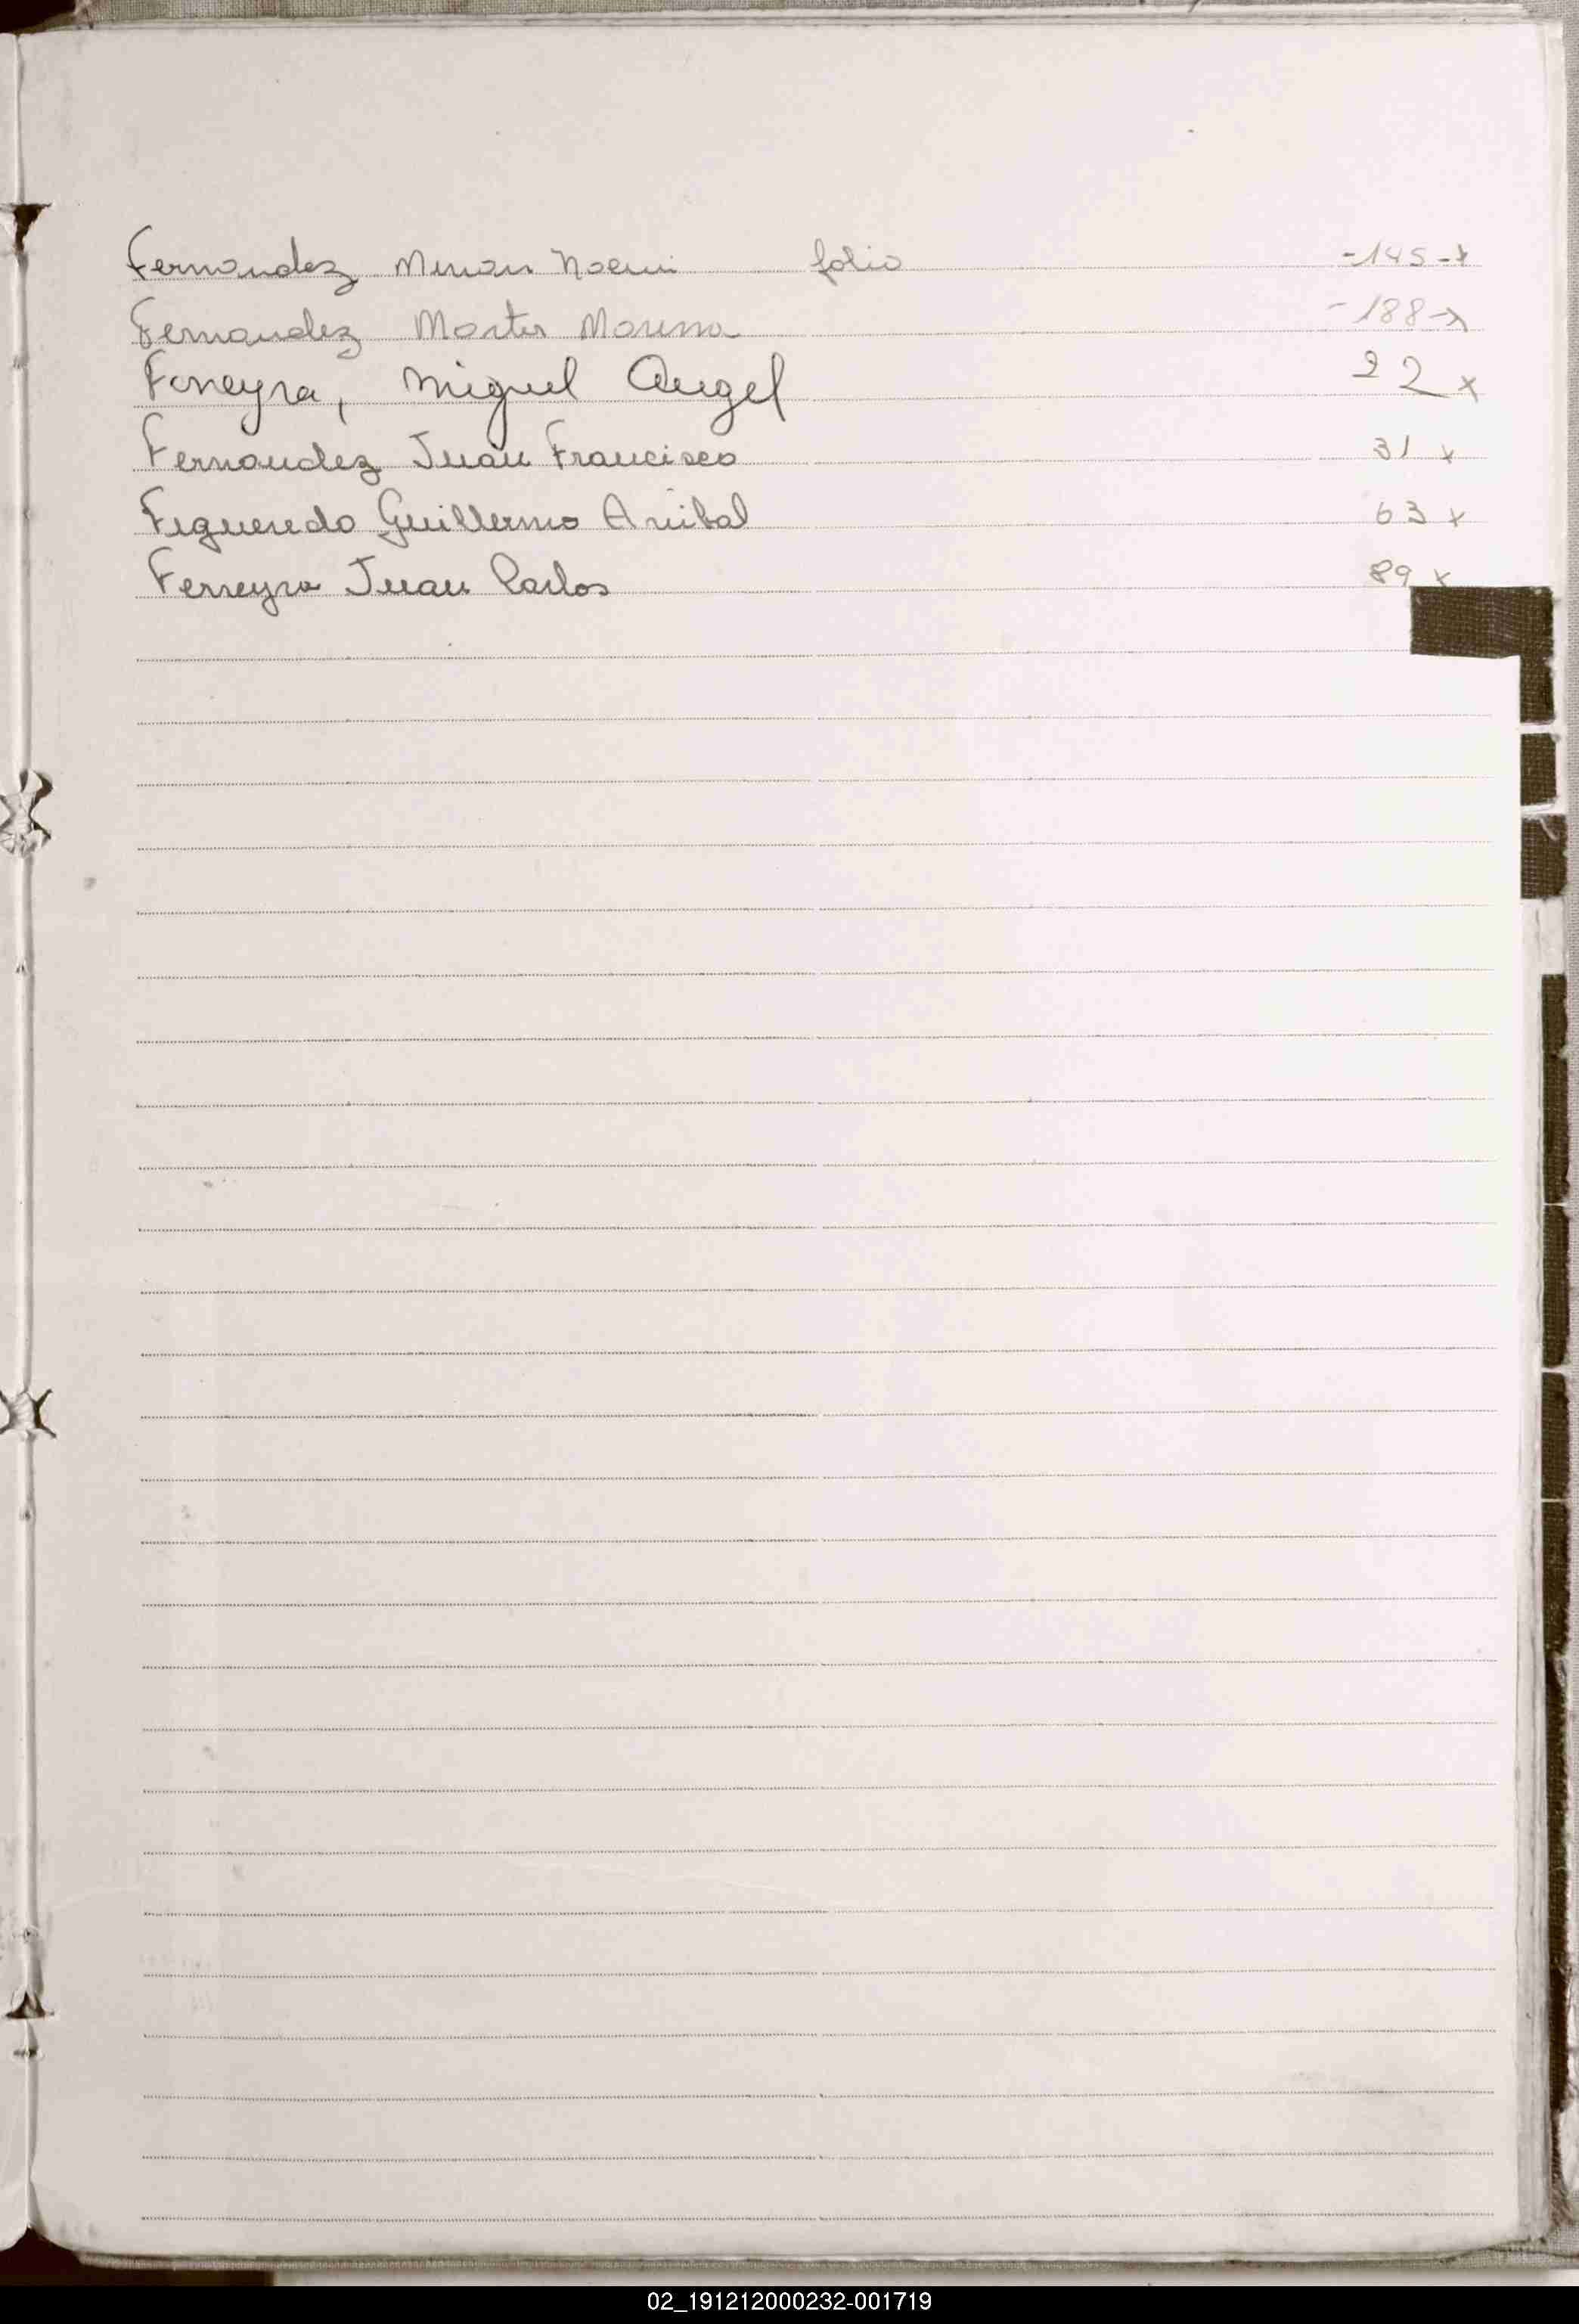 Fernandez Mirian Noemi folio -145-x
Fernandez Moreno -188-x
Ferreyra, Miguel Angel 22 x
Fernandez Juan Francisco 31 x
Figueredo Guillermo Anibal 63 x
Ferreyra Juan Carlos 89 x
02_191212000232-001719